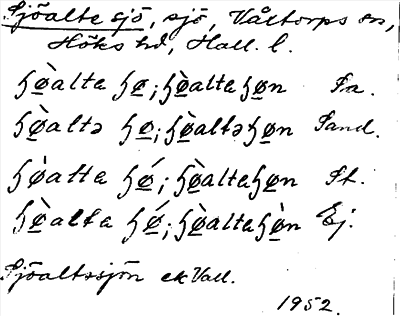 Sjöalte sjö, sjö, Våxtorps sn,
Höks hd, Hall. l.
ɧø̀alta ɧø; ɧø̀altaɧøn Fa.
ɧø̀altə ɧø; ɧø̀altəɧøn Sand.
ɧø̀alta ɧǿ; ɧø̀altaɧøn St.
ɧø̀alta ɧǿ; ɧø̀altaɧø̀n Ej.
Sjöaltssjön ek Vall.
1952.